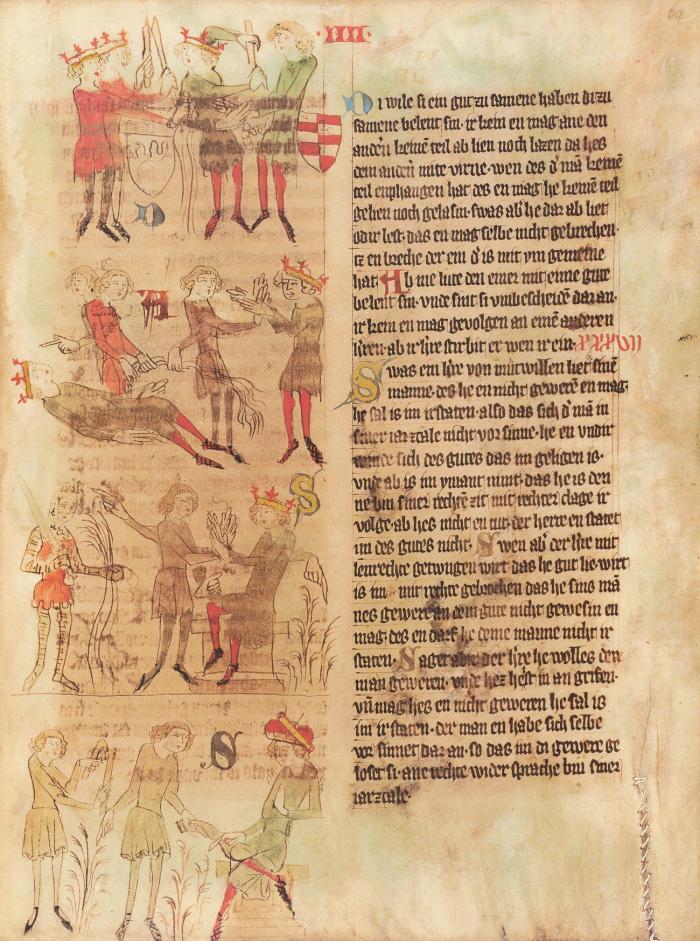 ·IIII·
60
Di wile si ein gut zu samene haben di zu
samene belent sin· ir kein en mag ane den
andern keinē teil ab lien noch lazen da hes
dem andern mite virne· wen des d' mā keinē
teil enphangen hat des en mag he keinē teil
gelien noch gelasin· swas ab' he dar ab liet
odir lest· das en mag selbe nicht gebrechen·
iz en breche der em d' is mit ym gemeine
hat· Ab me lute den einer mit eime gute
belent sin· vnde sint si vnbescheidē dar an·
ir kein en mag gevolgen an einē anderen
h'ren· ab ir h're stirbit er wen ir ein·
Swas ein h're von mutwillen liet sinē
manne· des he en nicht gewerē en mag·
he sal is im irstaten· also das sich d' mā in
siner iarzcale nicht vor sinne· he en vndir
winde sich des gutes das im geligen is·
vnde ab is im ymant nimt· das he is den
ne bin siner rechtē zit mit rechter clage ir
volge· ab hes nicht en tut· der herre en statet
im des gutes nicht· Swen ab' der h're mit
lenrechte getwngen wirt das he gut lie· wirt
is im mit rechte gebrochen das he sins mā
nes gewere an dem gute nicht gewesin en
mag· des en darf he deme manne nicht ir
staten· Saget abir der h're he wolles den
man geweren· vnde hez hest in an grifen·
vn̄ mag hes en nicht geweren he sal is
im ir staten· der man en habe sich selbe
vor sinnet dar an· so das im di gewere ge
loset si· ane rechte wider sprache bin siner
iarzcale·
S
S